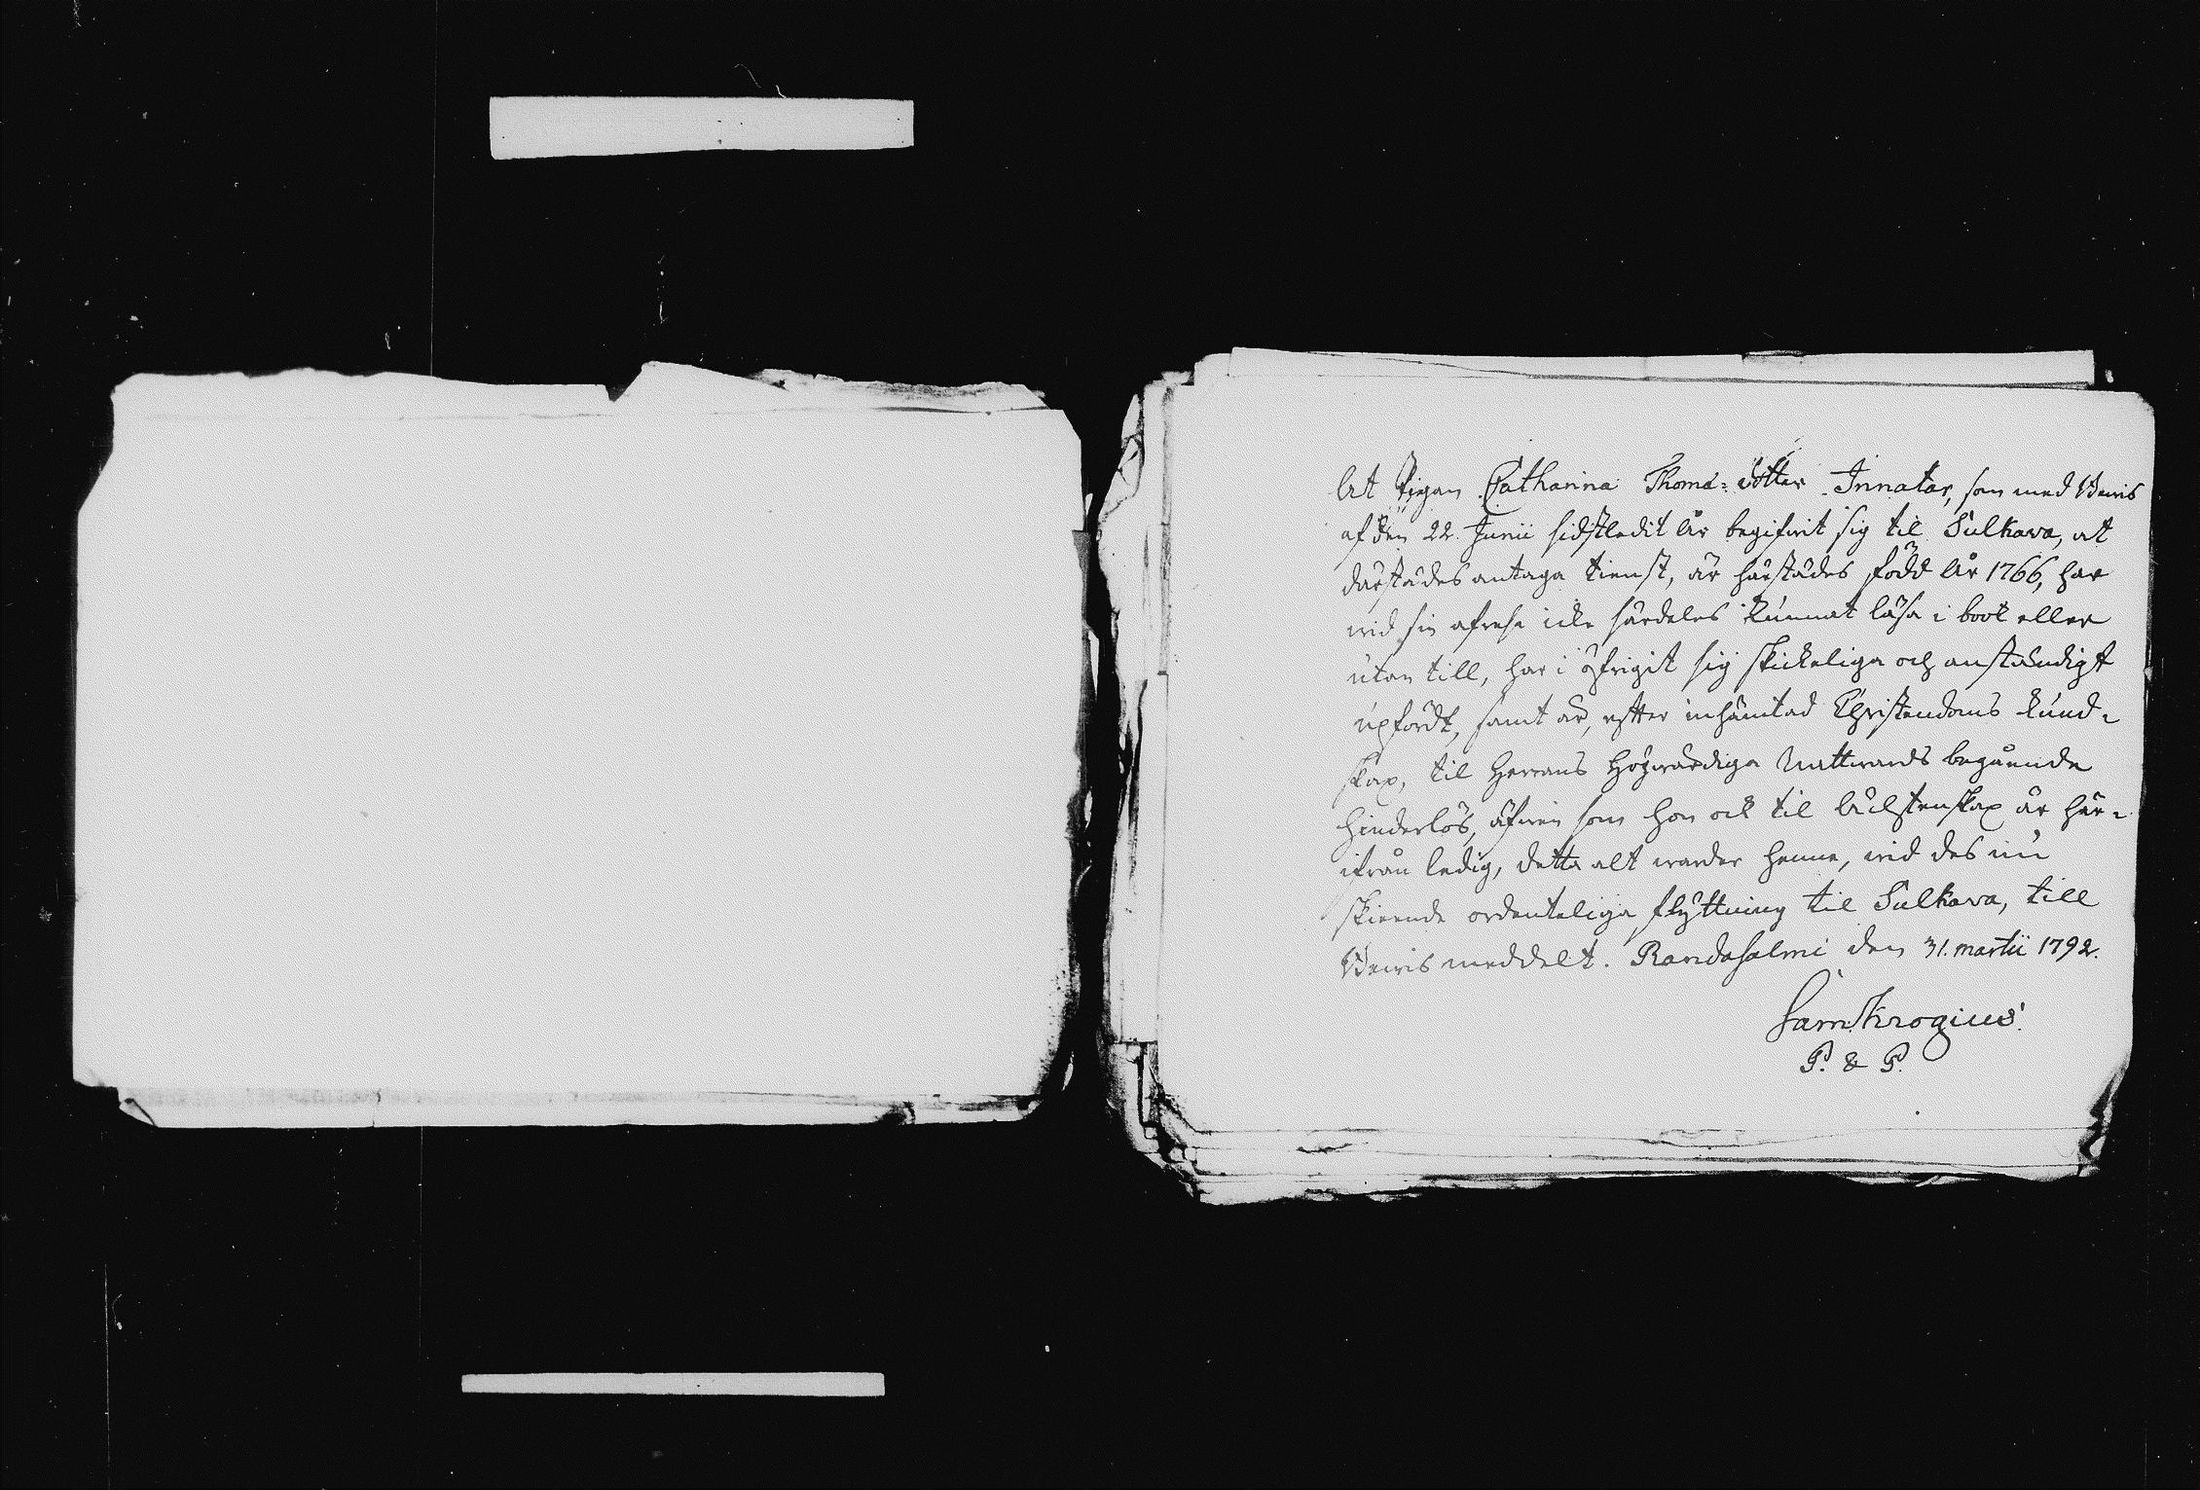 At Pigan Catharina Thomæ-dotter Innatar, som med Bewis
af den 22. Junii sidstledit År begifvit sig til Sulkava, at
därstädes antaga tienst, är härstädes född År 1766, har
vid sin afresa icke särdeles kunnat läsa i book eller
utan till, har i öfrigit sig skickeliga och anständigt
upfördt, samt är, efter inhämtad Christendoms kund-
skap, til Herrans Högwärdiga Nattwards begående
hinderlös, äfven som hon ock til Äcktenskap är här-
ifrån ledig, detta alt warder henne, vid des nu
skeende ordenteliga flyttning til Sulkava, till
Bewis meddelt. Randasalmi den 31. martii 1792.
Sam Krogius.
P. & P.